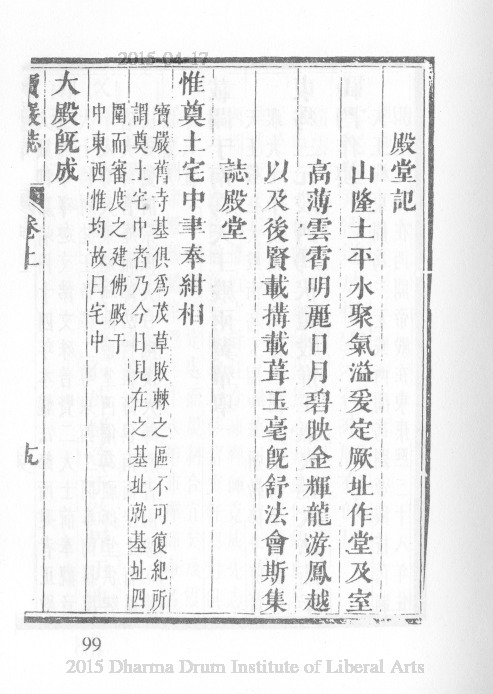 2015-04-17
殿堂記
山隆土平水聚氣溢爰定厥址作堂及室
高薄雲霄明麗日月碧映金輝龍游鳳越
以及後賢載搆載葺玉毫旣舒法會斯集
誌殿堂
惟奠土宅中聿奉紺相
寶嚴舊寺基俱爲茂草敗棘之區不可復紀所
謂奠土宅中者乃今日見在之基址就基址四
圍而審度之建佛殿于
中東西惟均故曰宅中
大殿旣成
寶嚴誌
卷上
九
99
2015 Dharma Drum Institute of Liberal Arts